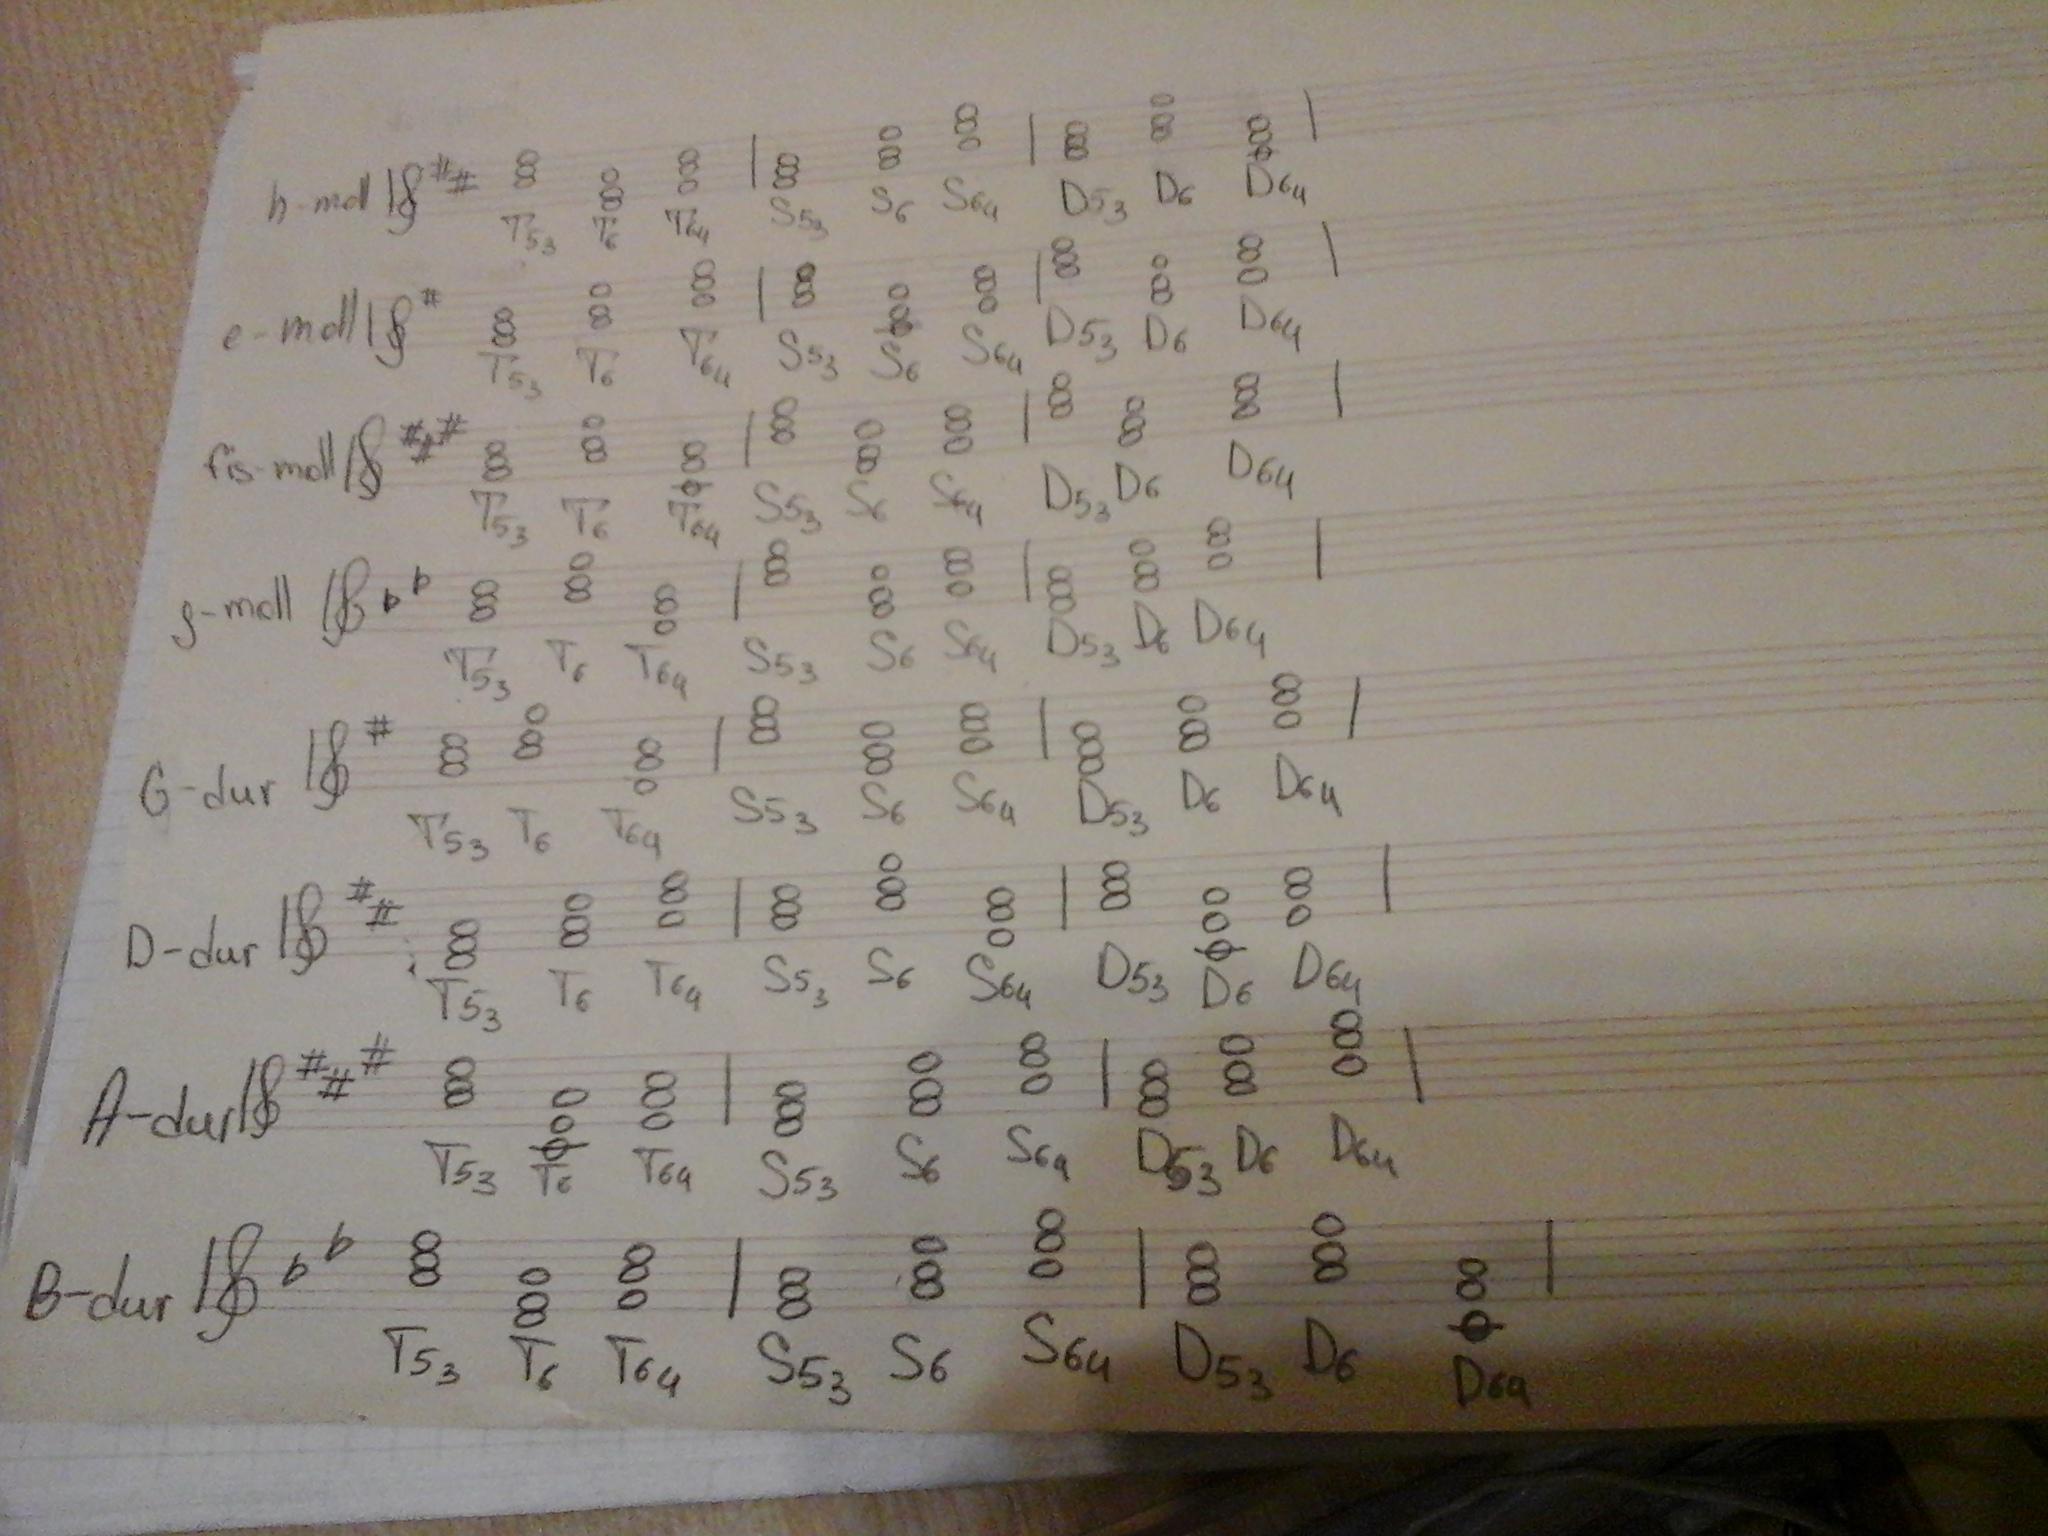 h-moll T53 T6 T64 S53 S6 S64 D53 D6 D64
e-moll T53 T6 T64 S53 S6 S64 D53 D6 D64
fis-moll T53 T6 T64 S53 S6 S64 D53 D6 D64
g-moll T53 T6 T64 S53 S6 S64 D53 D6 D64
G-dur T53 T6 T64 S53 S6 S64 D53 D6 D64
D-dur T53 T6 T64 S53 S6 S64 D53 D6 D64
A-dur T53 T6 T64 S53 S6 S64 D53 D6 D64
B-dur T53 T6 T64 S53 S6 S64 D53 D6 D64